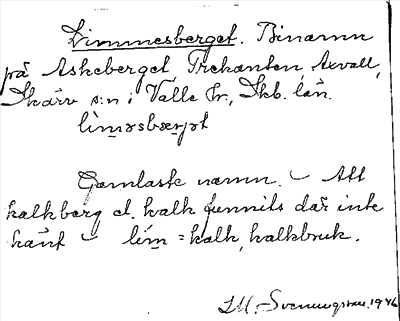 Limmesberget. Binamn
på Askeberget Trekanten Axvall,
Skärv s:n i Valle hr, Skb. län.
Gamlaste namn. – Att
kalkberg el. kalk funnits där inte
känt – lim = kalk, kalkbruk.
1946